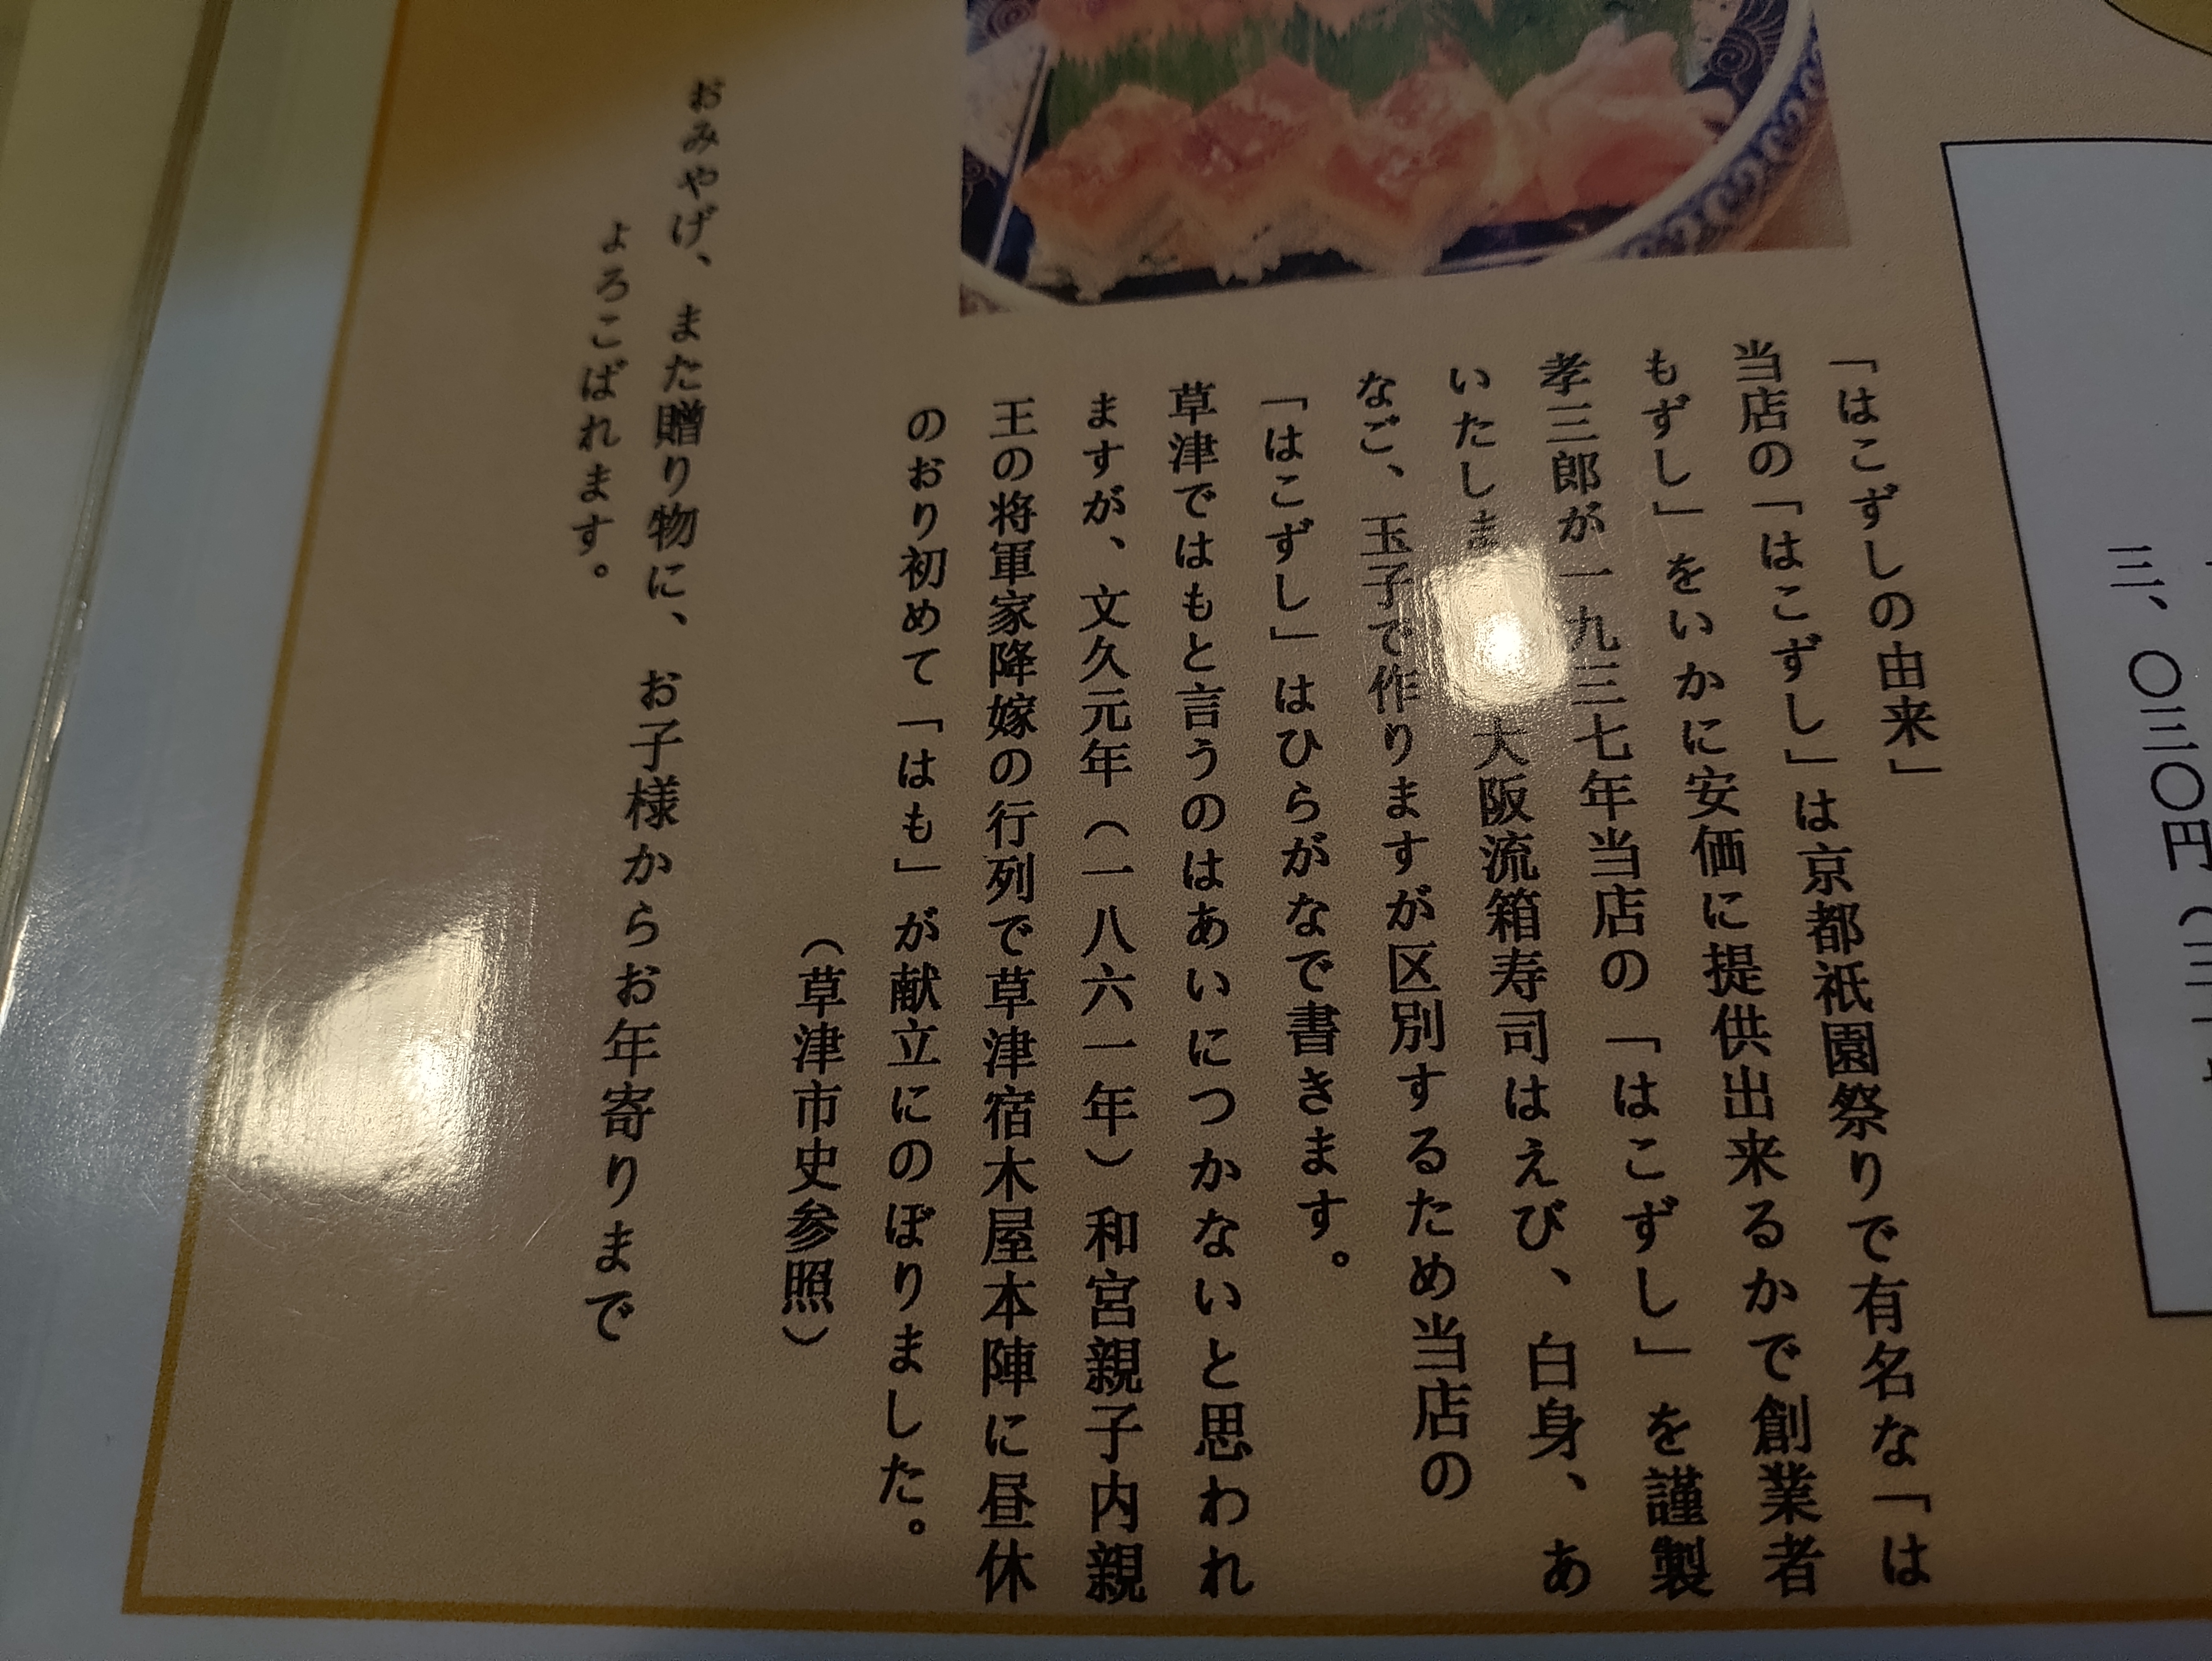 三、〇三〇円（三
「はこずしの由来」
当店の「はこずし」は京都祇園祭りで有名な「は
もずし」をいかに安価に提供出来るかで創業者
孝三郎が一九三七年当店の「はこずし」を謹製
いたしま 大阪流箱寿司はえび、白身、あ
なご、玉子で作りますが区別するため当店の
「はこずし」はひらがなで書きます。
草津ではもと言うのはあいにつかないと思われ
ますが、文久元年（一八六一年）和宮親子内親
王の将軍家降嫁の行列で草津宿木屋本陣に昼休
のおり初めて「はも」が献立にのぼりました。
（草津市史参照）
おみやげ、また贈り物に、お子様からお年寄りまで
よろこばれます。